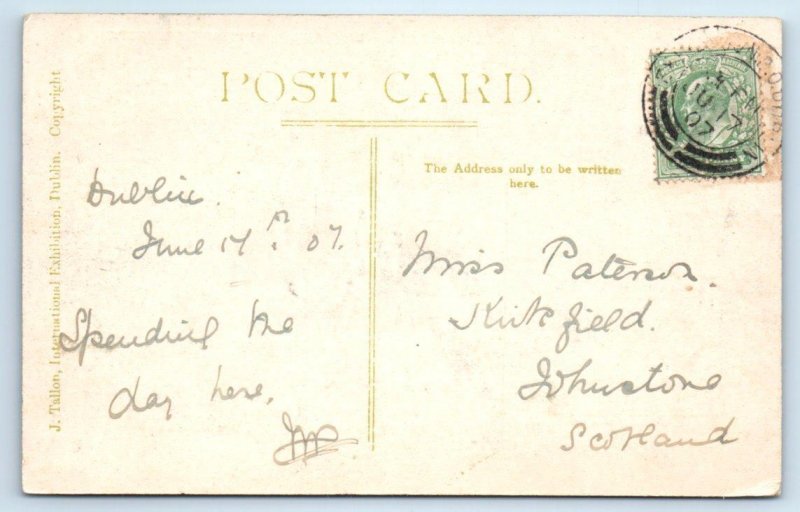 POST CARD.
The Address only to be written
here.
J. Tallon, International Exhibition, Dublin. Copyright
Dublin.
June 17th. 07.
Spending the
day here.
JMP
Miss Paterson.
Kirkfield.
Johnstone
Scotland
JU 17
07